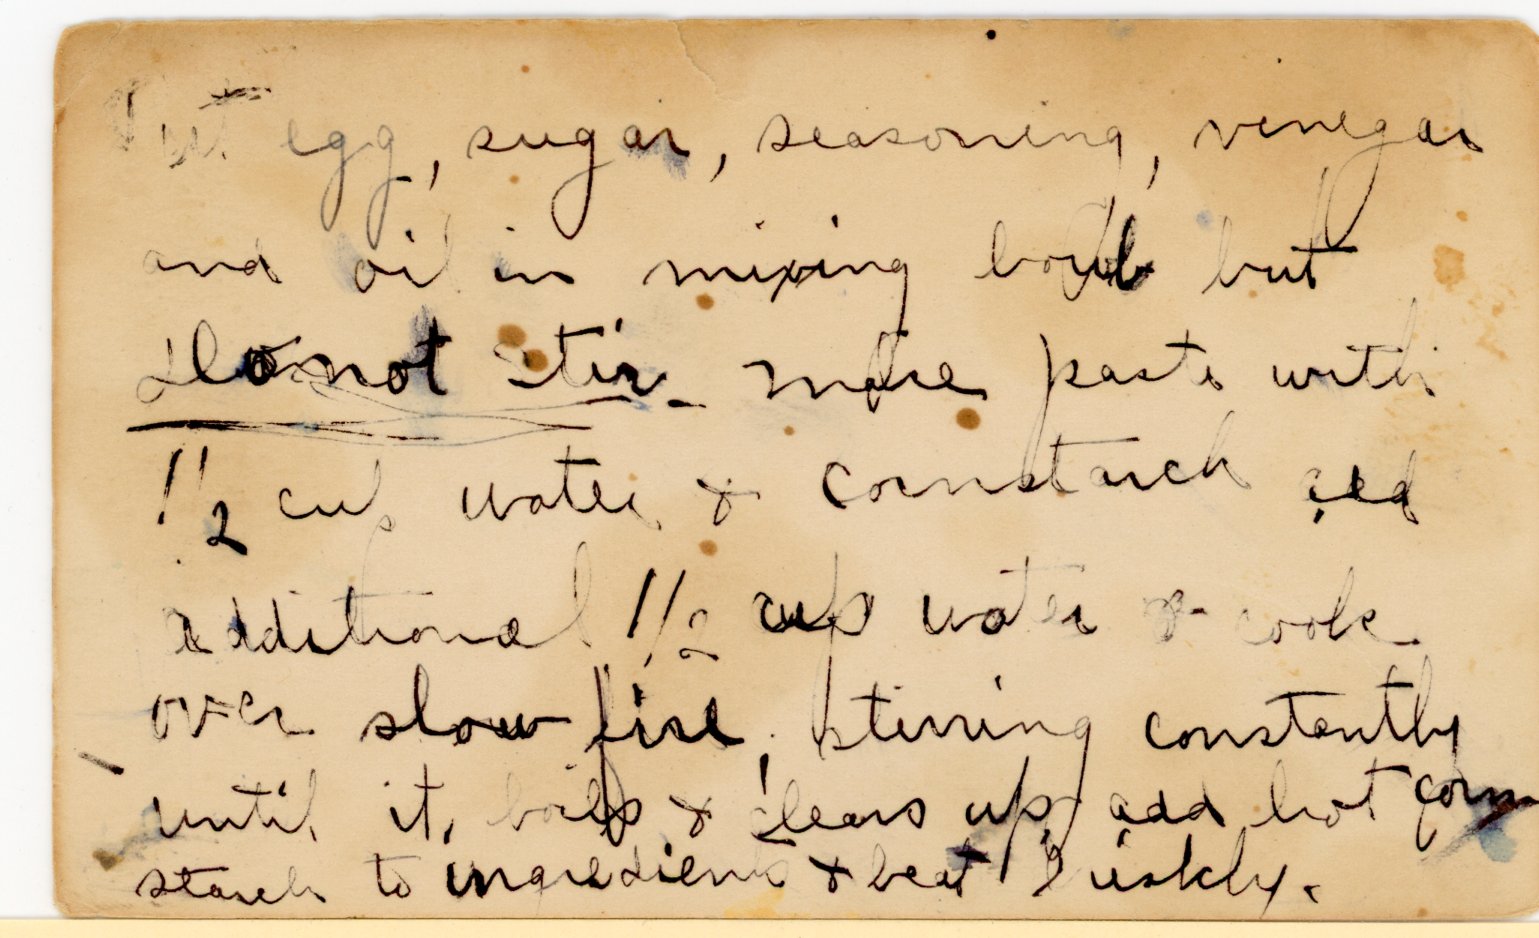 Put egg, sugar, seasoning, vinegar
and oil in mixing bowl but
do not stir. make paste with
1/2 cup water & cornstarch add
additional 1/2 cup water & cook
over slow fire, stirring constantly
until it boils & clears up, add hot corn
starch to ingredients & beat briskly.